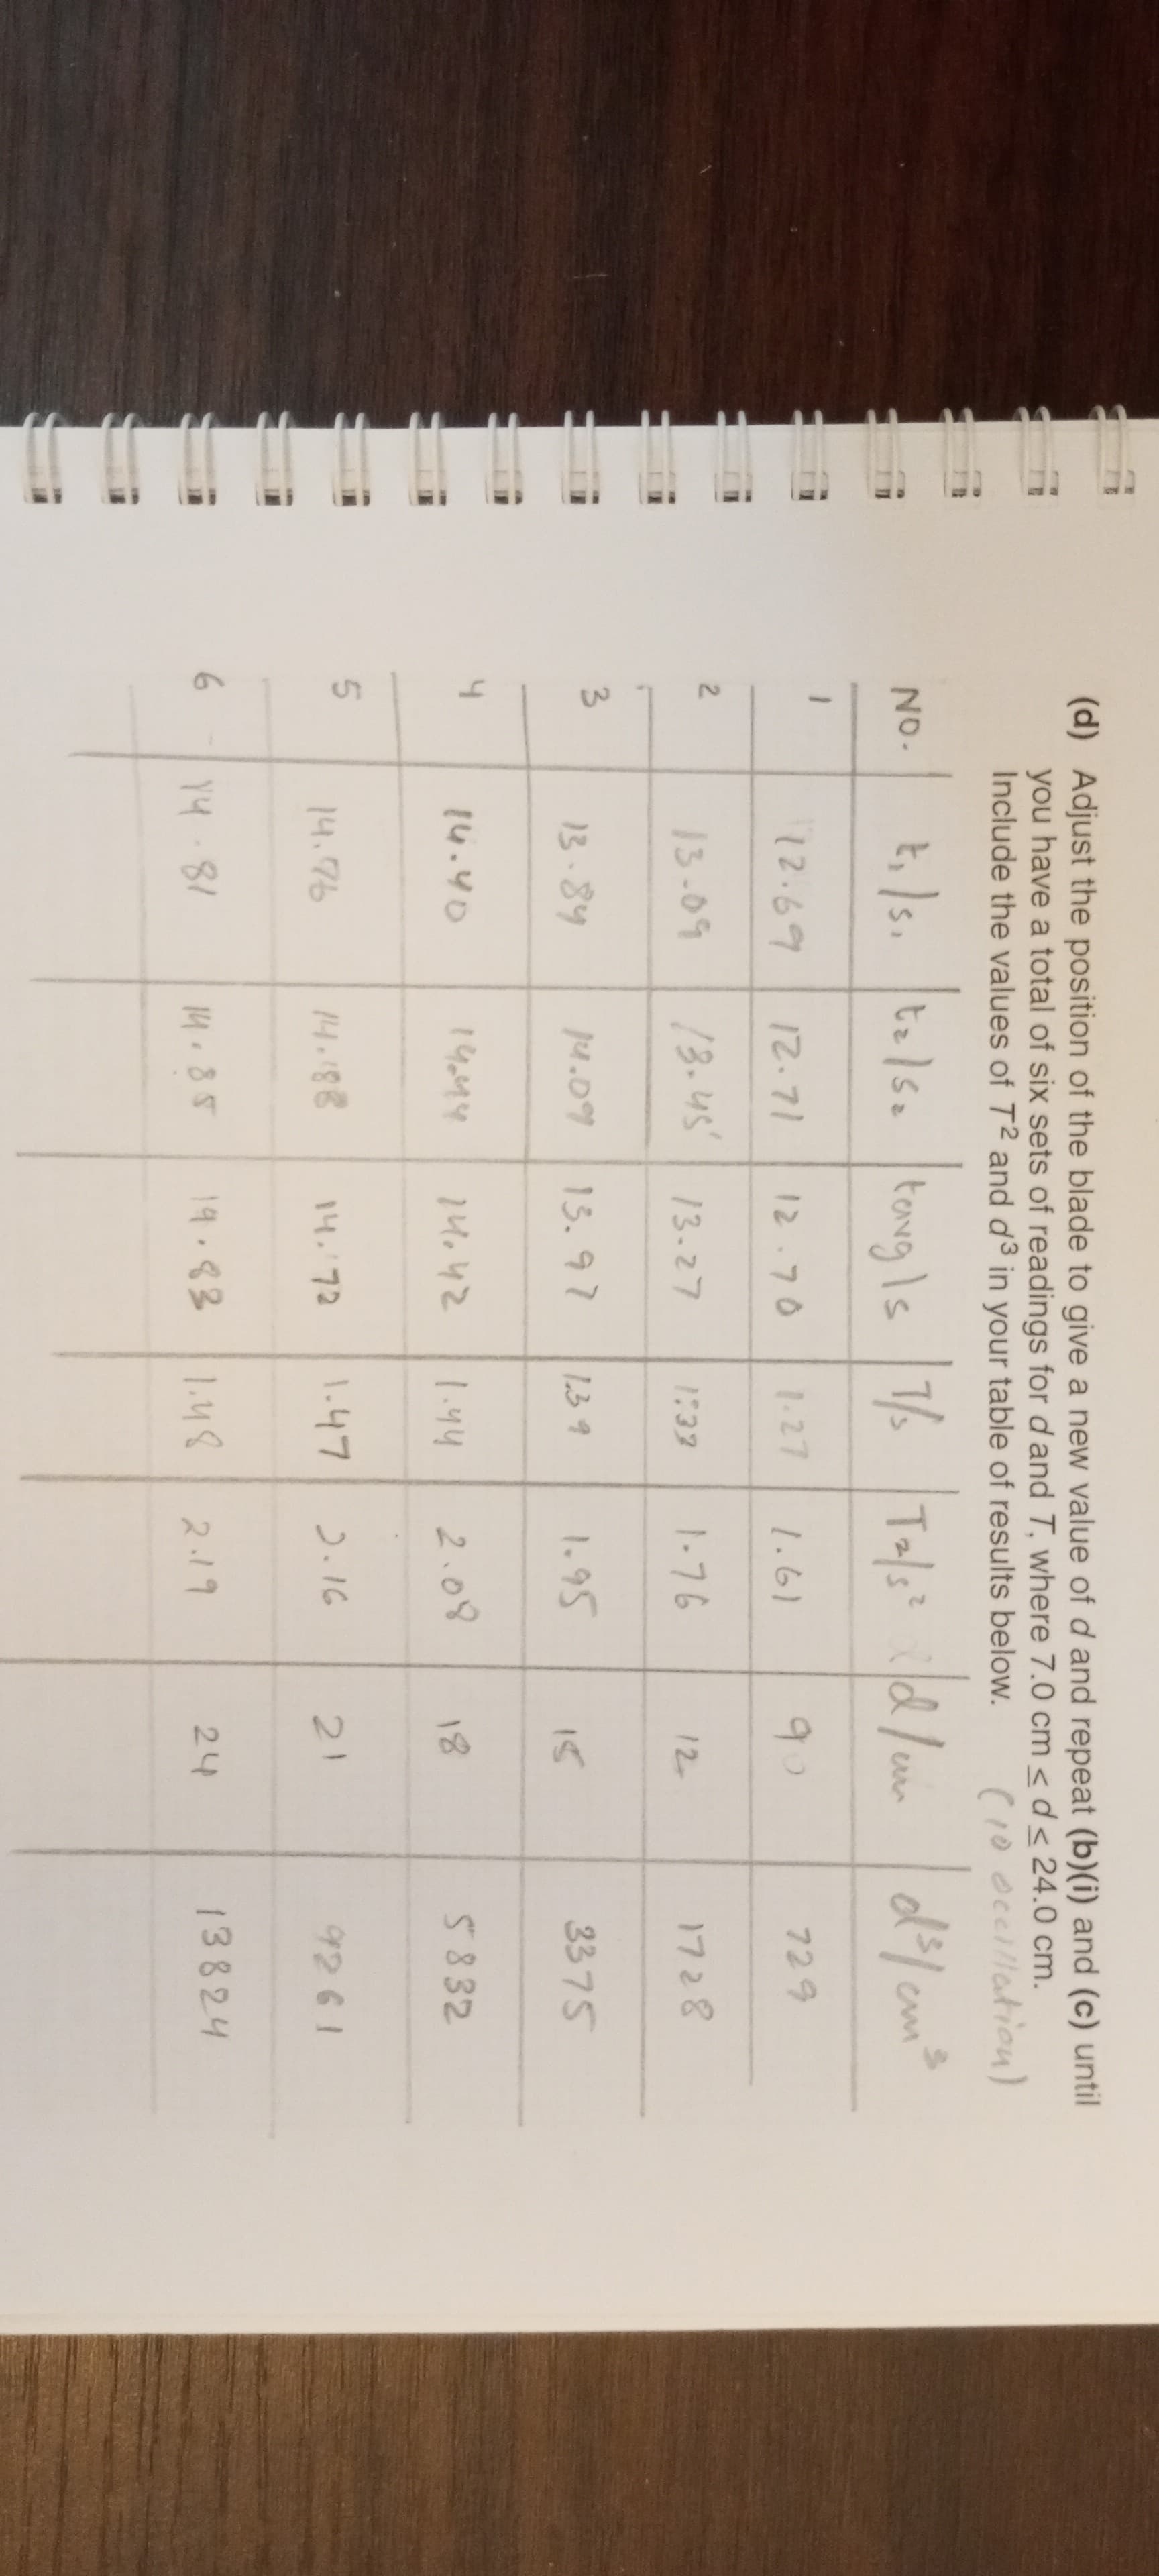 (d) Adjust the position of the blade to give a new value of d and repeat (b)(i) and (c) until
you have a total of six sets of readings for d and T, where 7.0 cm ≤ d ≤ 24.0 cm.
Include the values of T² and d³ in your table of results below. (10 occillation)
NO. t₁/s₁ t₂/s₂ tavg/s T/s T²/s² d/cm d³/cm³
1 12.69 12.71 12.70 1.27 1.61 9 729
2 13.09 13.45 13.27 1.33 1.76 12 1728
3 13.84 14.09 13.97 1.39 1.95 15 3375
4 14.40 14.44 14.42 1.44 2.08 18 5832
5 14.76 14.72 1.47 2.16 21 9261
6 14.81 14.85 14.83 1.48 2.19 24 13824